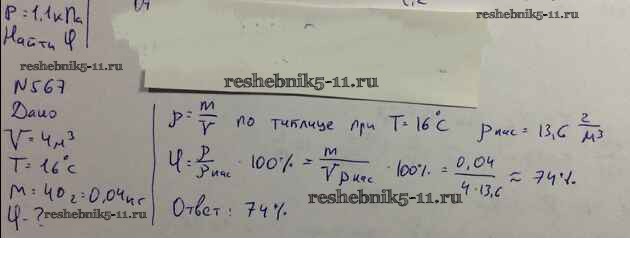 p = 1,1 кПа
Найти φ
reshebnik5-11.ru
reshebnik5-11.ru
reshebnik5-11.ru
N567
Дано
V = 4 м³
T = 16°C
m = 40 г = 0,04 кг
φ - ?
reshebnik5-11.ru
ρ = m/V по таблице при T = 16°C ρнас = 13,6 г/м³
φ = ρ/ρнас · 100% = m/Vρнас · 100% = 0,04/4·13,6 ≈ 74%
reshebnik5-11.ru
Ответ: 74%.